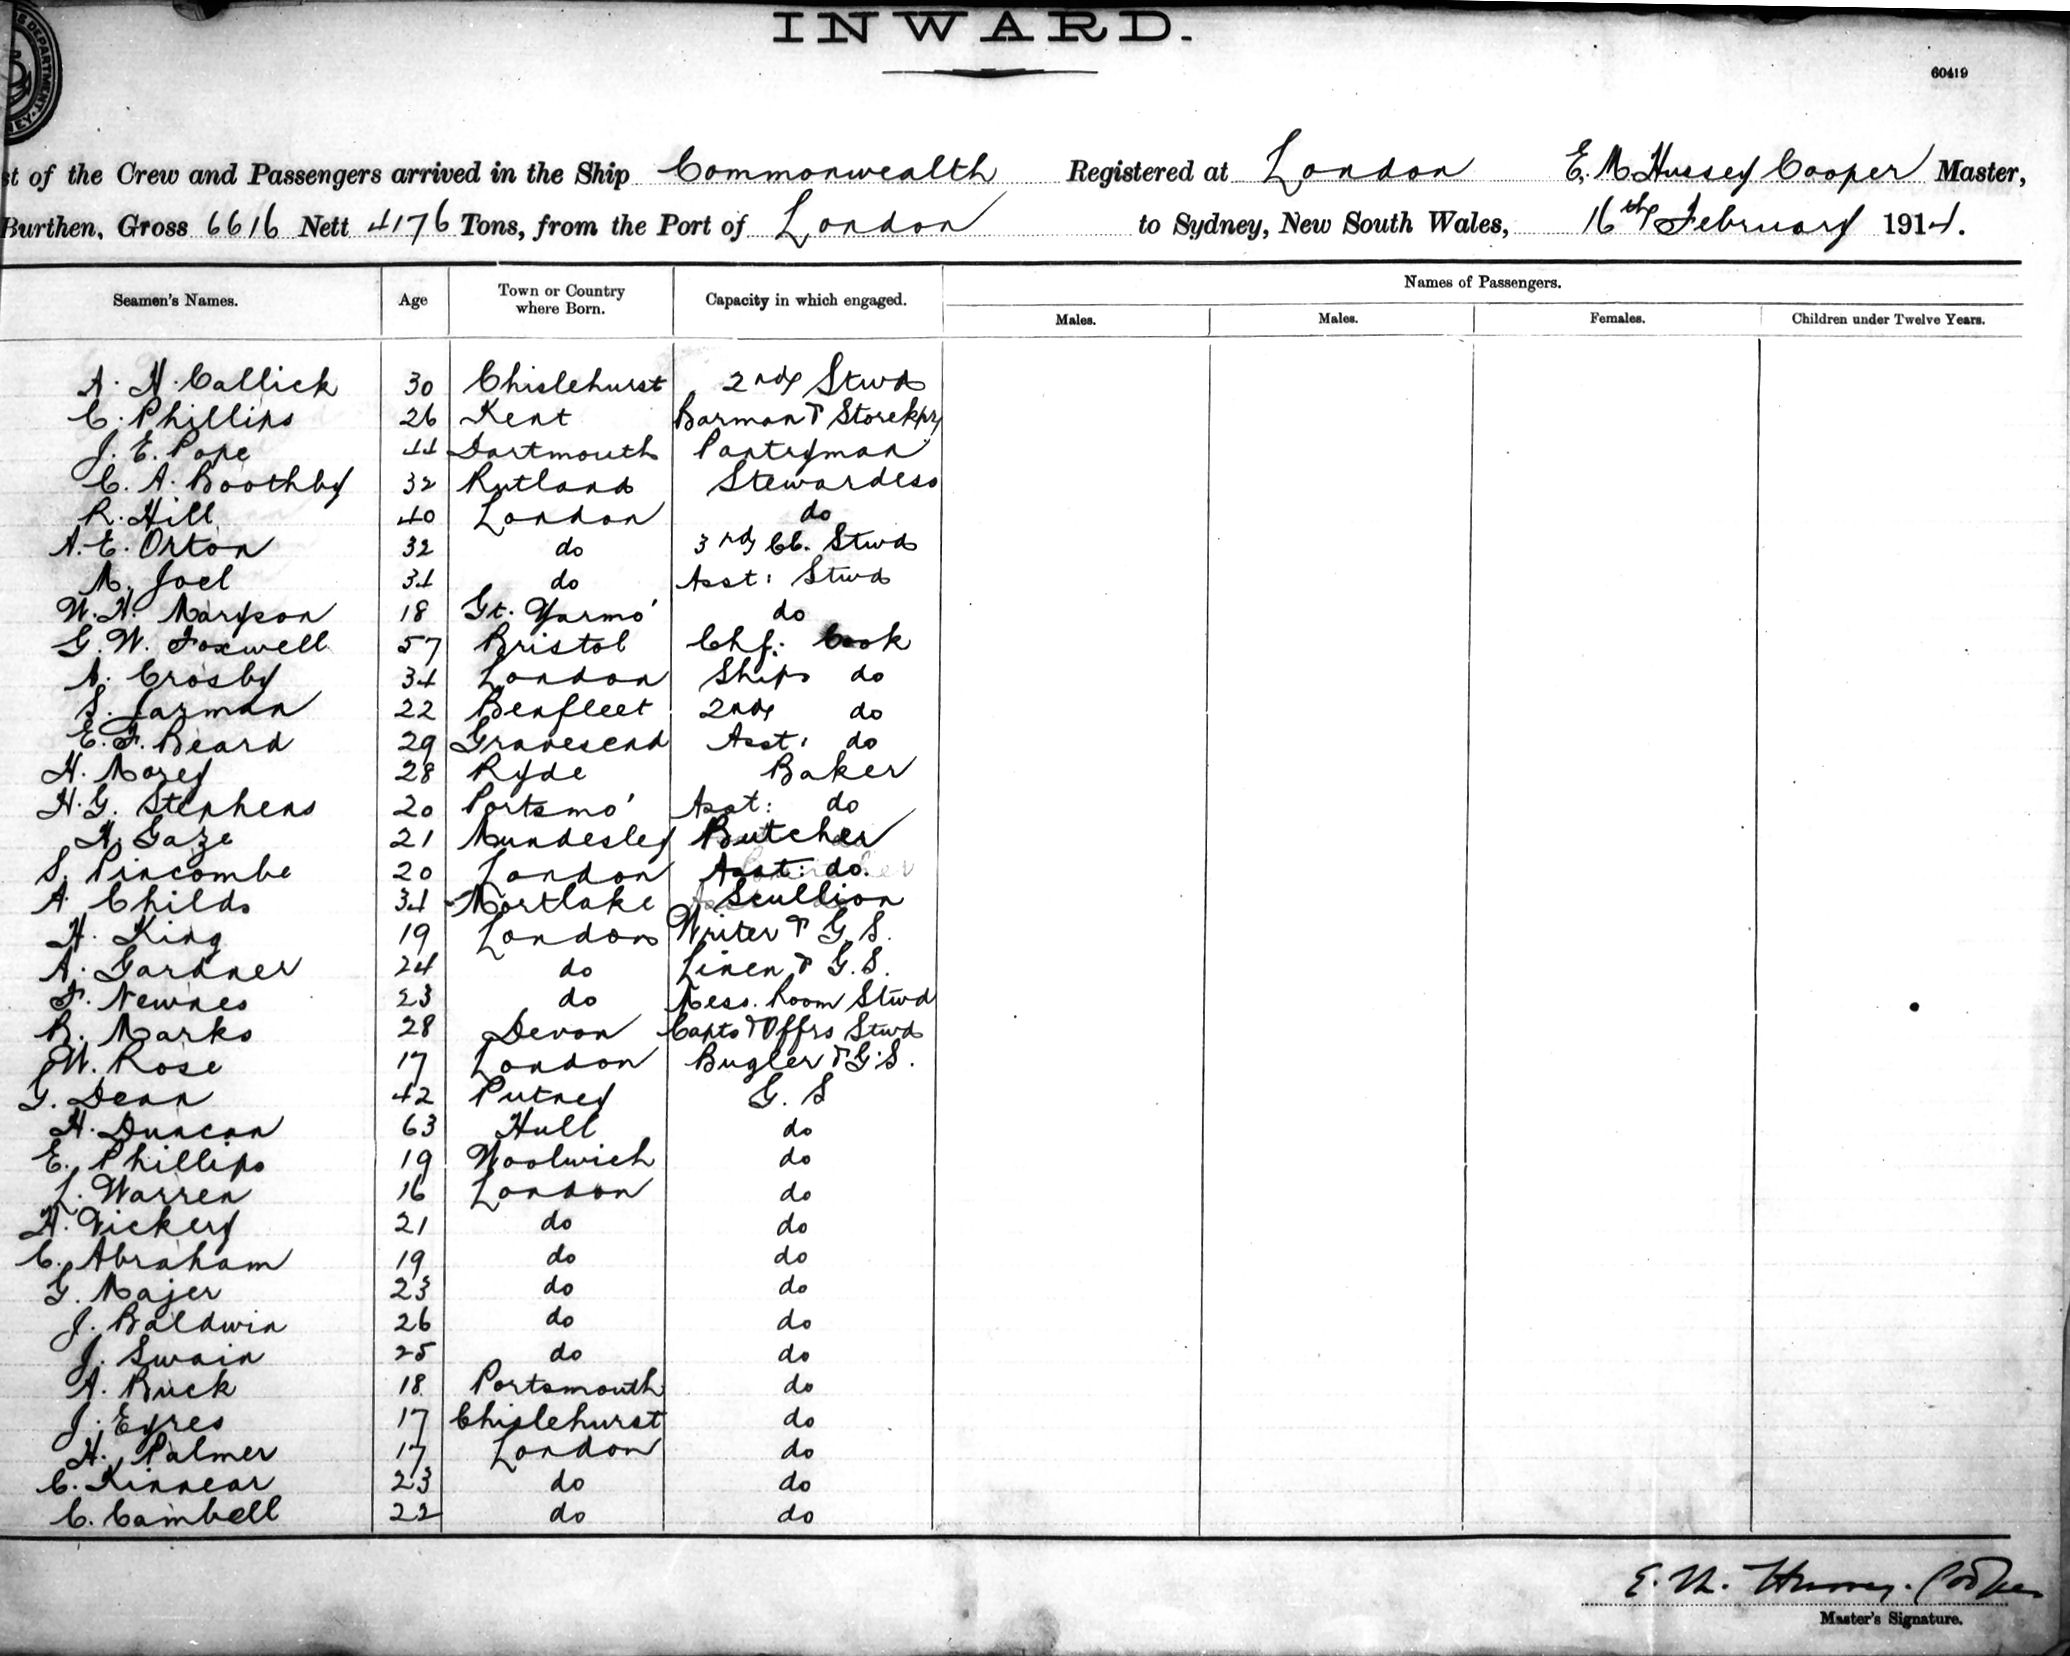 INWARD.
60419
st of the Crew and Passengers arrived in the Ship Commonwealth Registered at London E. M Hussey Cooper Master,
Burthen, Gross 6616 Nett 4176 Tons, from the Port of London to Sydney, New South Wales, 16th February 1914.
Seamen's Names. Age Town or Country where Born. Capacity in which engaged. Names of Passengers.
Males. Males. Females. Children under Twelve Years.
A. H. Callick 30 Chislehurst 2nd Stwd
C. Phillips 26 Kent Barman & Storekpr
J. E. Pope 44 Dartmouth Pantryman
C. A. Boothby 32 Rutland Stewardess
R. Hill 40 London do
A. E. Orton 32 do 3rd Cl. Stwd
M. Joel 34 do Asst: Stwd
W. H. Maryson 18 Gt. Yarmo' do
G. W. Foxwell 57 Bristol Chf: Cook
A. Crosby 34 London Ships do
S. Jarman 22 Benfleet 2nd do
E. F. Beard 29 Gravesend Asst: do
H. Morey 28 Ryde Baker
H. G. Stephens 20 Portsmo' Asst: do
H. Gaze 21 Mundesley Butcher
S. Pincombe 20 London Asst: do.
A. Childs 34 Mortlake Scullion
H. King 19 London Writer & G. S.
A. Gardner 24 do Linen & G. S.
F. Newnes 23 do Mess. Room Stwd
B. Marks 28 Devon Capts & Offrs Stwd
W. Rose 17 London Bugler & G. S.
G. Dean 42 Putney G. S
H. Duncan 63 Hull do
E. Phillips 19 Woolwich do
L. Warren 16 London do
H. Vickery 21 do do
C. Abraham 19 do do
G. Majer 23 do do
J. Baldwin 26 do do
J. Swain 25 do do
A. Buck 18 Portsmouth do
J. Eyres 17 Chislehurst do
H. Palmer 17 London do
C. Kinnear 23 do do
C. Cambell 22 do do
E. M. Hussey. Cooper
Master's Signature.